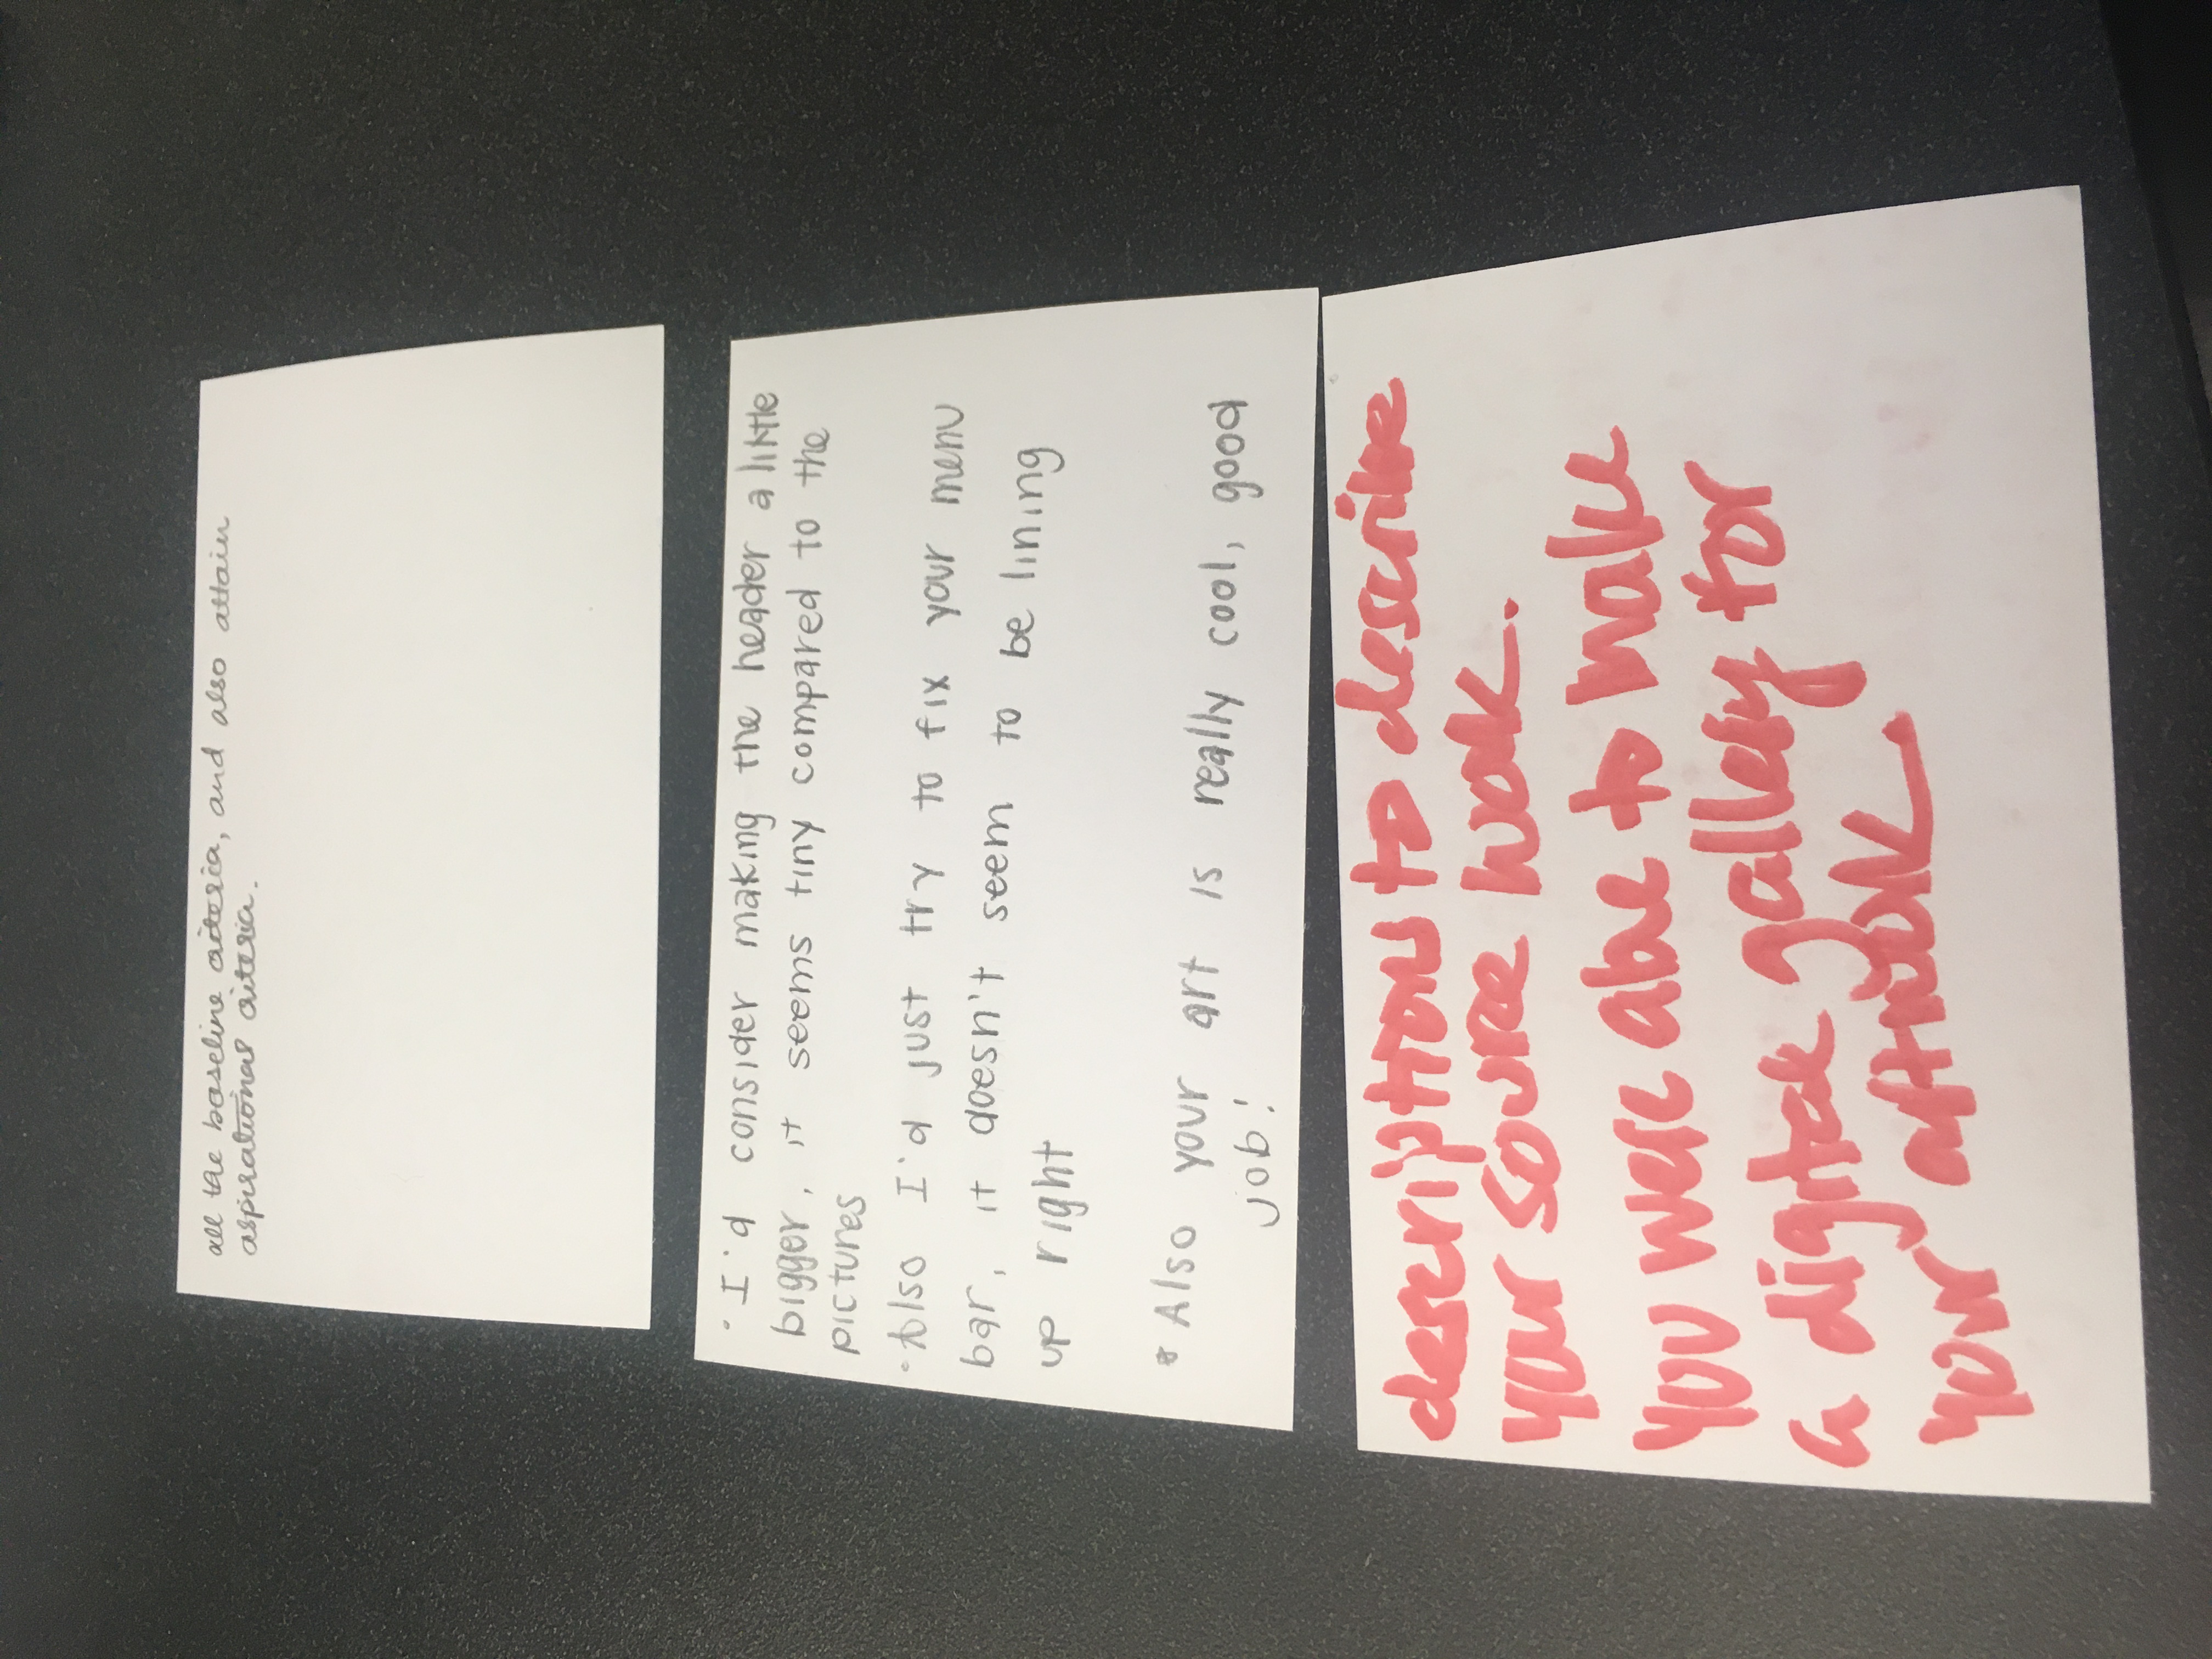 all the baseline criteria, and also attain
aspirational criteria.
• I'd consider making the header a little
bigger, it seems tiny compared to the
pictures
• Also I'd just try to fix your menu
bar, it doesn't seem to be lining
up right
* Also your art is really cool, good
job!
descriptions to describe
your source work.
You were able to make
a digital gallery for
your artwork.